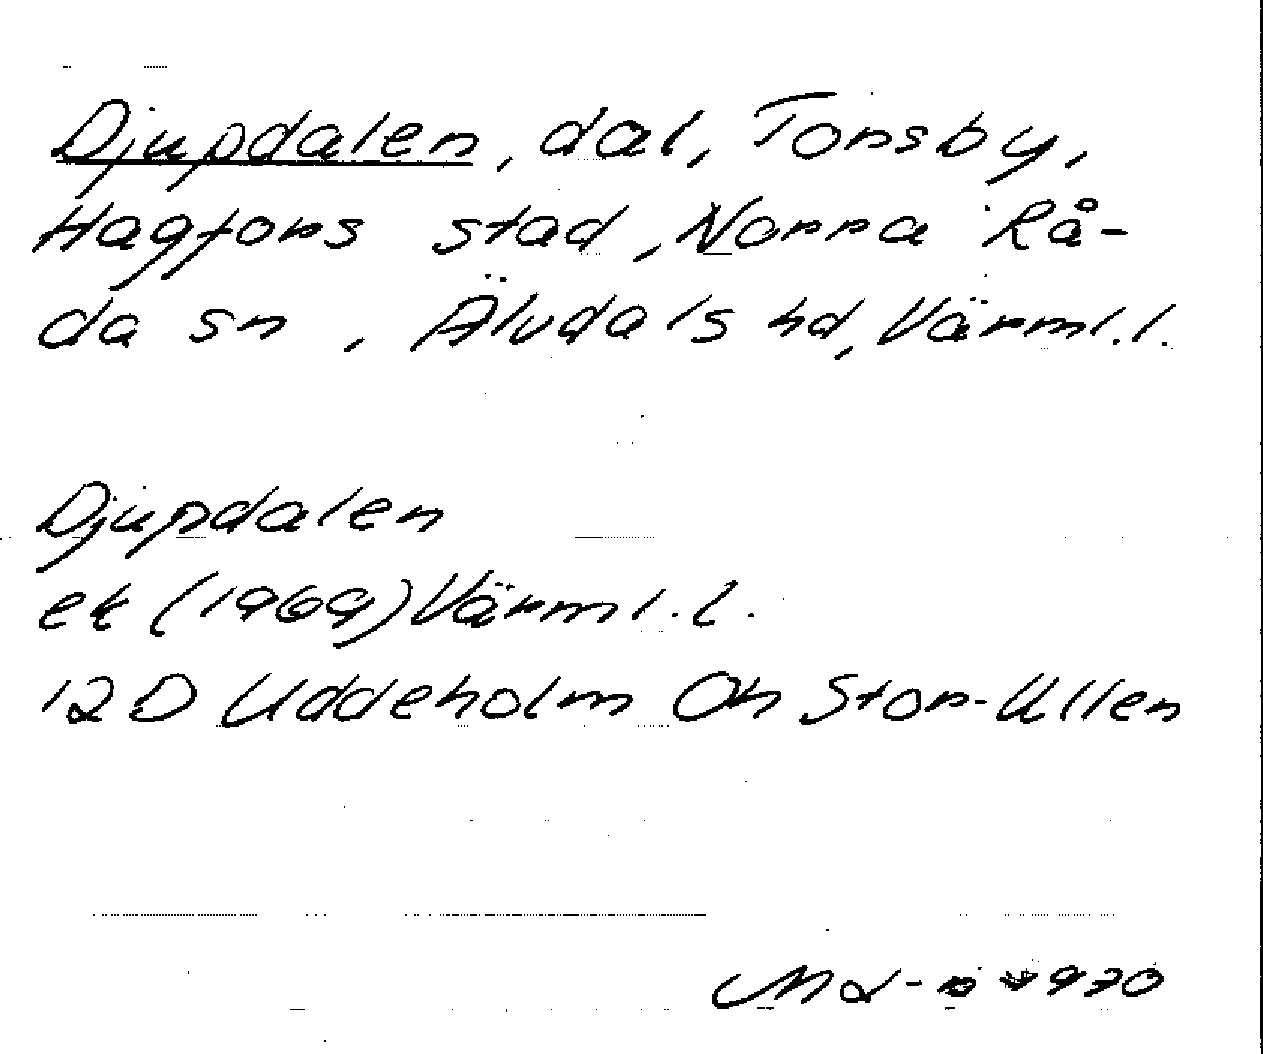 Djupdalen, dal, Torsby,
Hagfors stad, Norra Rå-
da sn, Älvdals hd, Värml.l.
Djupdalen
ek (1969) Värml.l.
12D Uddeholm Oh Stor-Ullen